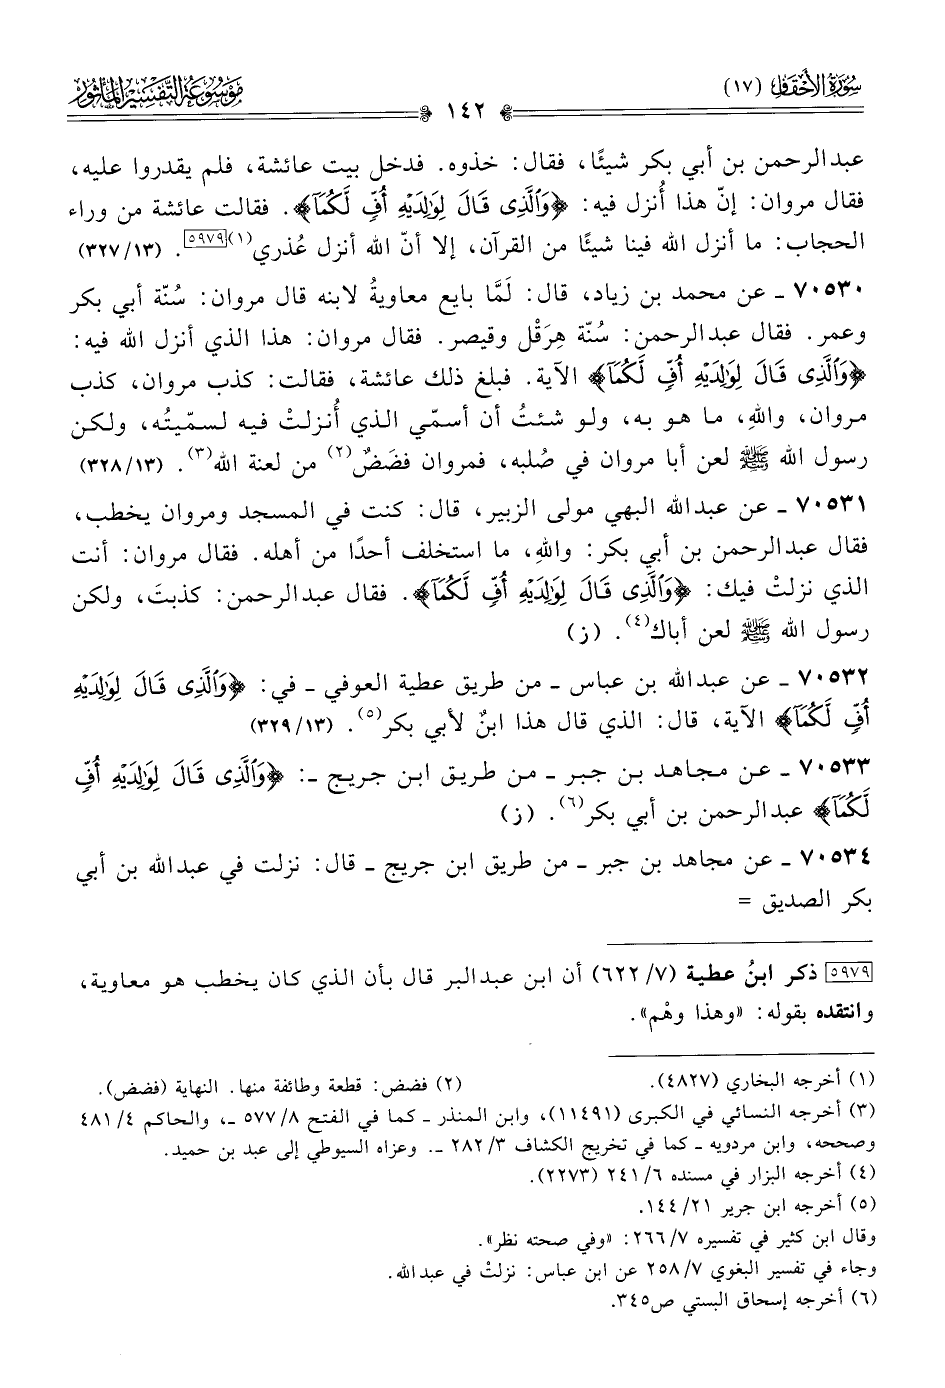 سورة الأحقاف (١٧)
١٤٢
موسوعة التفسير المأثور
عبدالرحمن بن أبي بكر شيئًا، فقال: خذوه. فدخل بيت عائشة، فلم يقدروا عليه،
فقال مروان: إنّ هذا أُنزل فيه: ﴿وَٱلَّذِى قَالَ لِوَٰلِدَيْهِ أُفٍّ لَّكُمَآ﴾. فقالت عائشة من وراء
الحجاب: ما أنزل الله فينا شيئًا من القرآن، إلا أنّ الله أنزل عُذري(١)[٥٩٧٩]. (٣٢٧/١٣)
٧٠٥٣٠ ـ عن محمد بن زياد، قال: لَمَّا بايع معاويةُ لابنه قال مروان: سُنّة أبي بكر
وعمر. فقال عبدالرحمن: سُنّة هِرَقْل وقيصر. فقال مروان: هذا الذي أنزل الله فيه:
﴿وَٱلَّذِى قَالَ لِوَٰلِدَيْهِ أُفٍّ لَّكُمَآ﴾ الآية. فبلغ ذلك عائشة، فقالت: كذب مروان، كذب
مروان، واللهِ، ما هو به، ولو شئتُ أن أسمّي الذي أُنزلتْ فيه لسمّيتُه، ولكن
رسول الله ﷺ لعن أبا مروان في صُلبه، فمروان فضَضٌ(٢) من لعنة الله(٣). (٣٢٨/١٣)
٧٠٥٣١ ـ عن عبدالله البهي مولى الزبير، قال: كنت في المسجد ومروان يخطب،
فقال عبدالرحمن بن أبي بكر: واللهِ، ما استخلف أحدًا من أهله. فقال مروان: أنت
الذي نزلتْ فيك: ﴿وَٱلَّذِى قَالَ لِوَٰلِدَيْهِ أُفٍّ لَّكُمَآ﴾. فقال عبدالرحمن: كذبتَ، ولكن
رسول الله ﷺ لعن أباك(٤). (ز)
٧٠٥٣٢ ـ عن عبدالله بن عباس ـ من طريق عطية العوفي ـ في: ﴿وَٱلَّذِى قَالَ لِوَٰلِدَيْهِ
أُفٍّ لَّكُمَآ﴾ الآية، قال: الذي قال هذا ابنٌ لأبي بكر(٥). (٣٢٩/١٣)
٧٠٥٣٣ ـ عن مجاهد بن جبر ـ من طريق ابن جريج ـ: ﴿وَٱلَّذِى قَالَ لِوَٰلِدَيْهِ أُفٍّ
لَّكُمَآ﴾ عبدالرحمن بن أبي بكر(٦). (ز)
٧٠٥٣٤ ـ عن مجاهد بن جبر ـ من طريق ابن جريج ـ قال: نزلت في عبدالله بن أبي
بكر الصديق =
[٥٩٧٩] ذكر ابنُ عطية (٦٢٢/٧) أن ابن عبدالبر قال بأن الذي كان يخطب هو معاوية،
وانتقده بقوله: «وهذا وهْم».
(١) أخرجه البخاري (٤٨٢٧). (٢) فضض: قطعة وطائفة منها. النهاية (فضض).
(٣) أخرجه النسائي في الكبرى (١١٤٩١)، وابن المنذر ـ كما في الفتح ٥٧٧/٨ ـ، والحاكم ٤٨١/٤
وصححه، وابن مردويه ـ كما في تخريج الكشاف ٢٨٢/٣ ـ. وعزاه السيوطي إلى عبد بن حميد.
(٤) أخرجه البزار في مسنده ٢٤١/٦ (٢٢٧٣).
(٥) أخرجه ابن جرير ١٤٤/٢١.
وقال ابن كثير في تفسيره ٢٦٦/٧: «وفي صحته نظر».
وجاء في تفسير البغوي ٢٥٨/٧ عن ابن عباس: نزلتْ في عبدالله.
(٦) أخرجه إسحاق البستي ص٣٤٥.